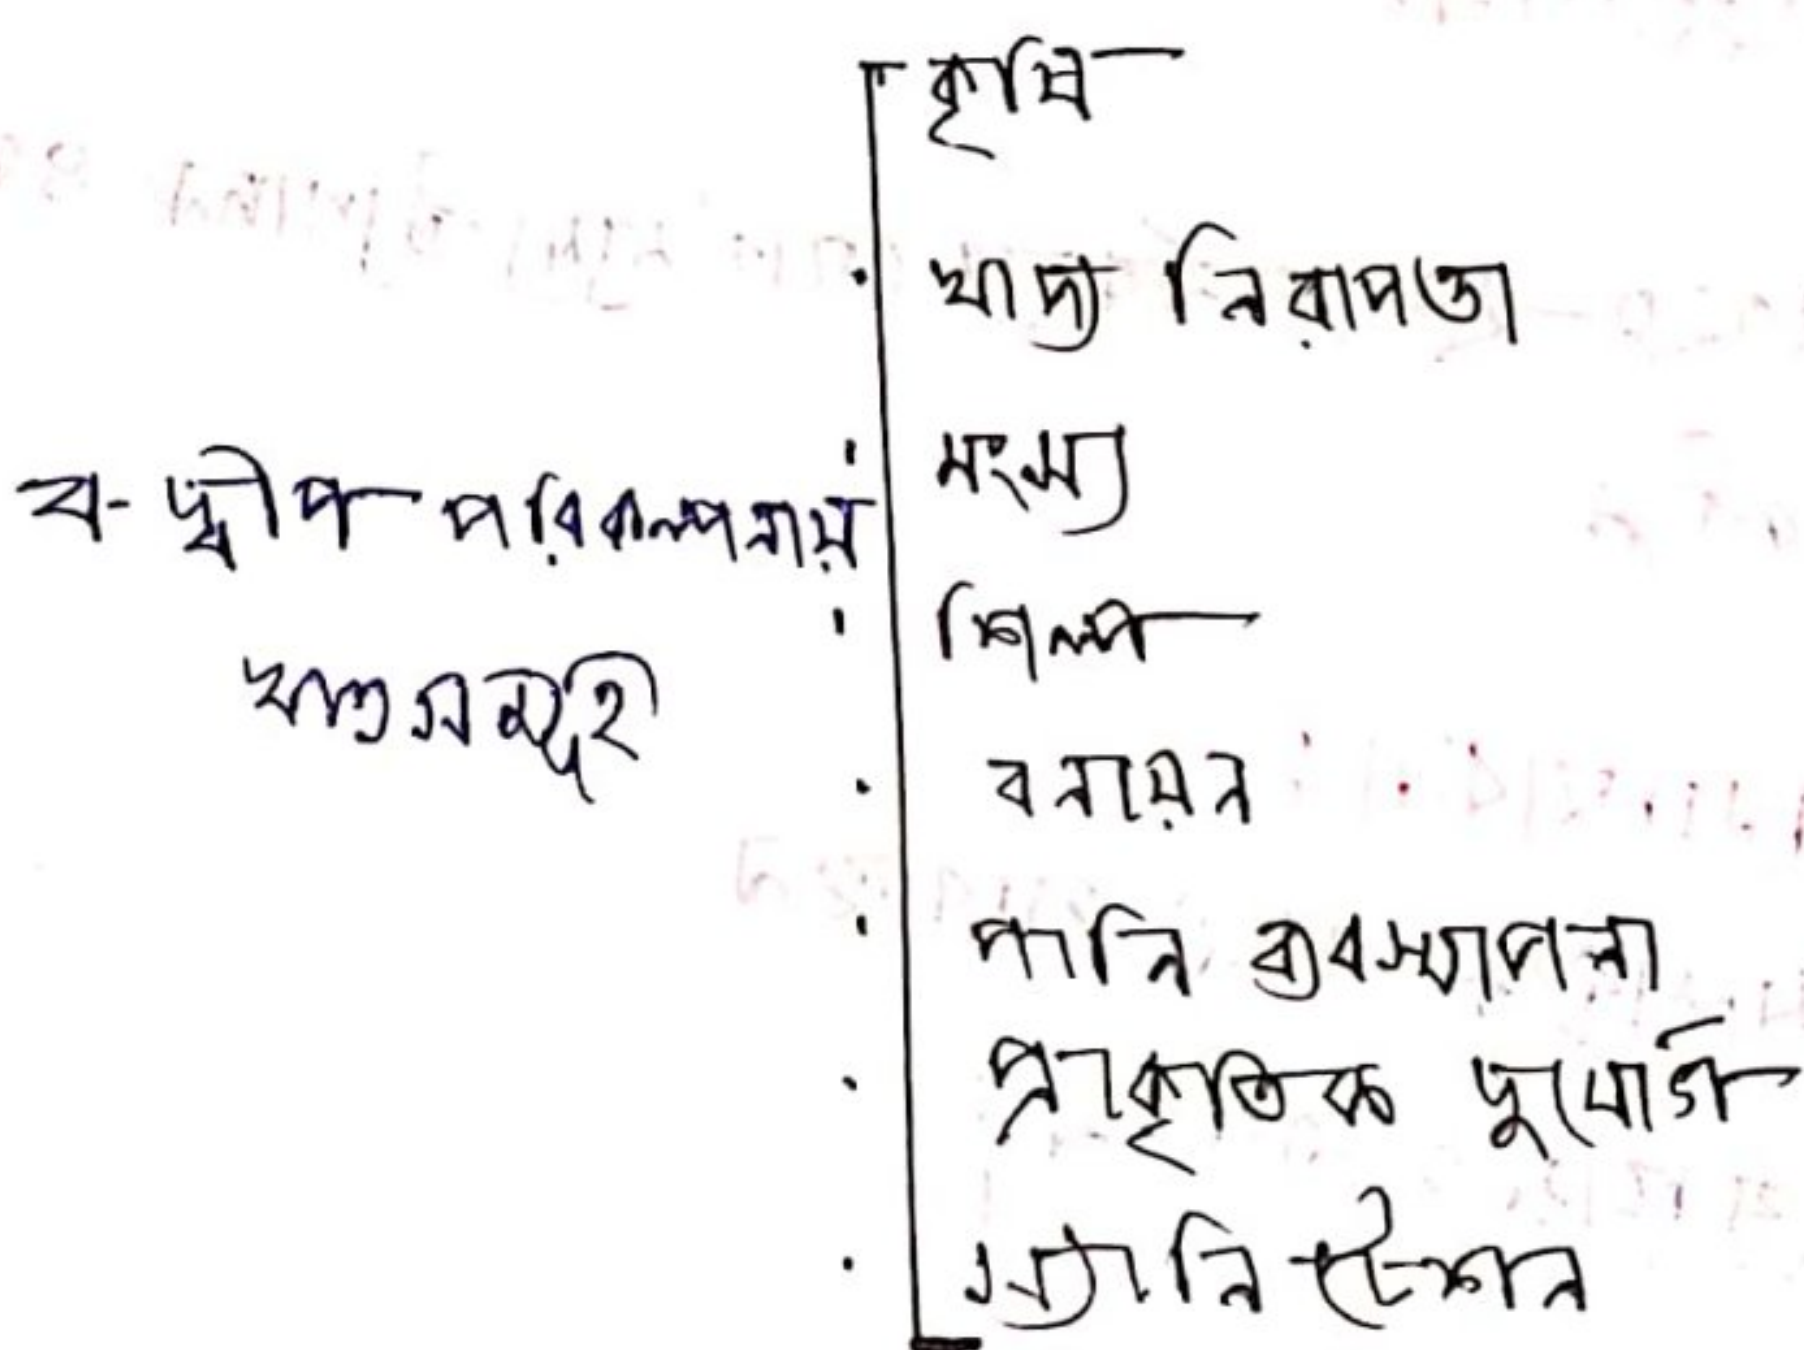 ব-দ্বীপ পরিকল্পনায়
খাতসমূহ
কৃষি
খাদ্য নিরাপত্তা
মৎস্য
শিল্প
বনায়ন
পানি ব্যবস্থাপনা
প্রাকৃতিক দুর্যোগ
স্যানিটেশন